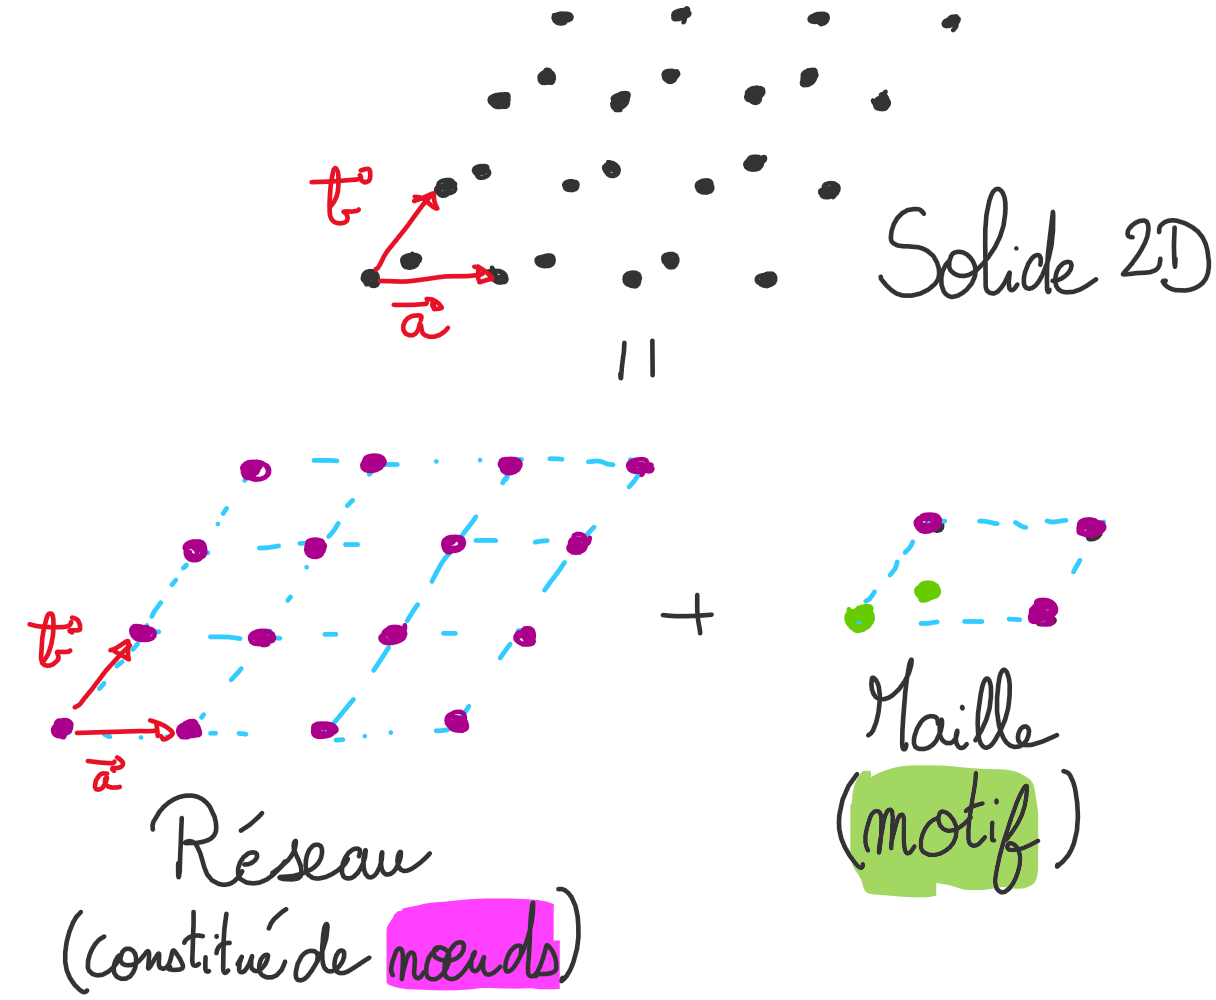 b
a
Solide 2D
=
b
a
+
Maille
(motif)
Réseau
(constitué de nœuds)